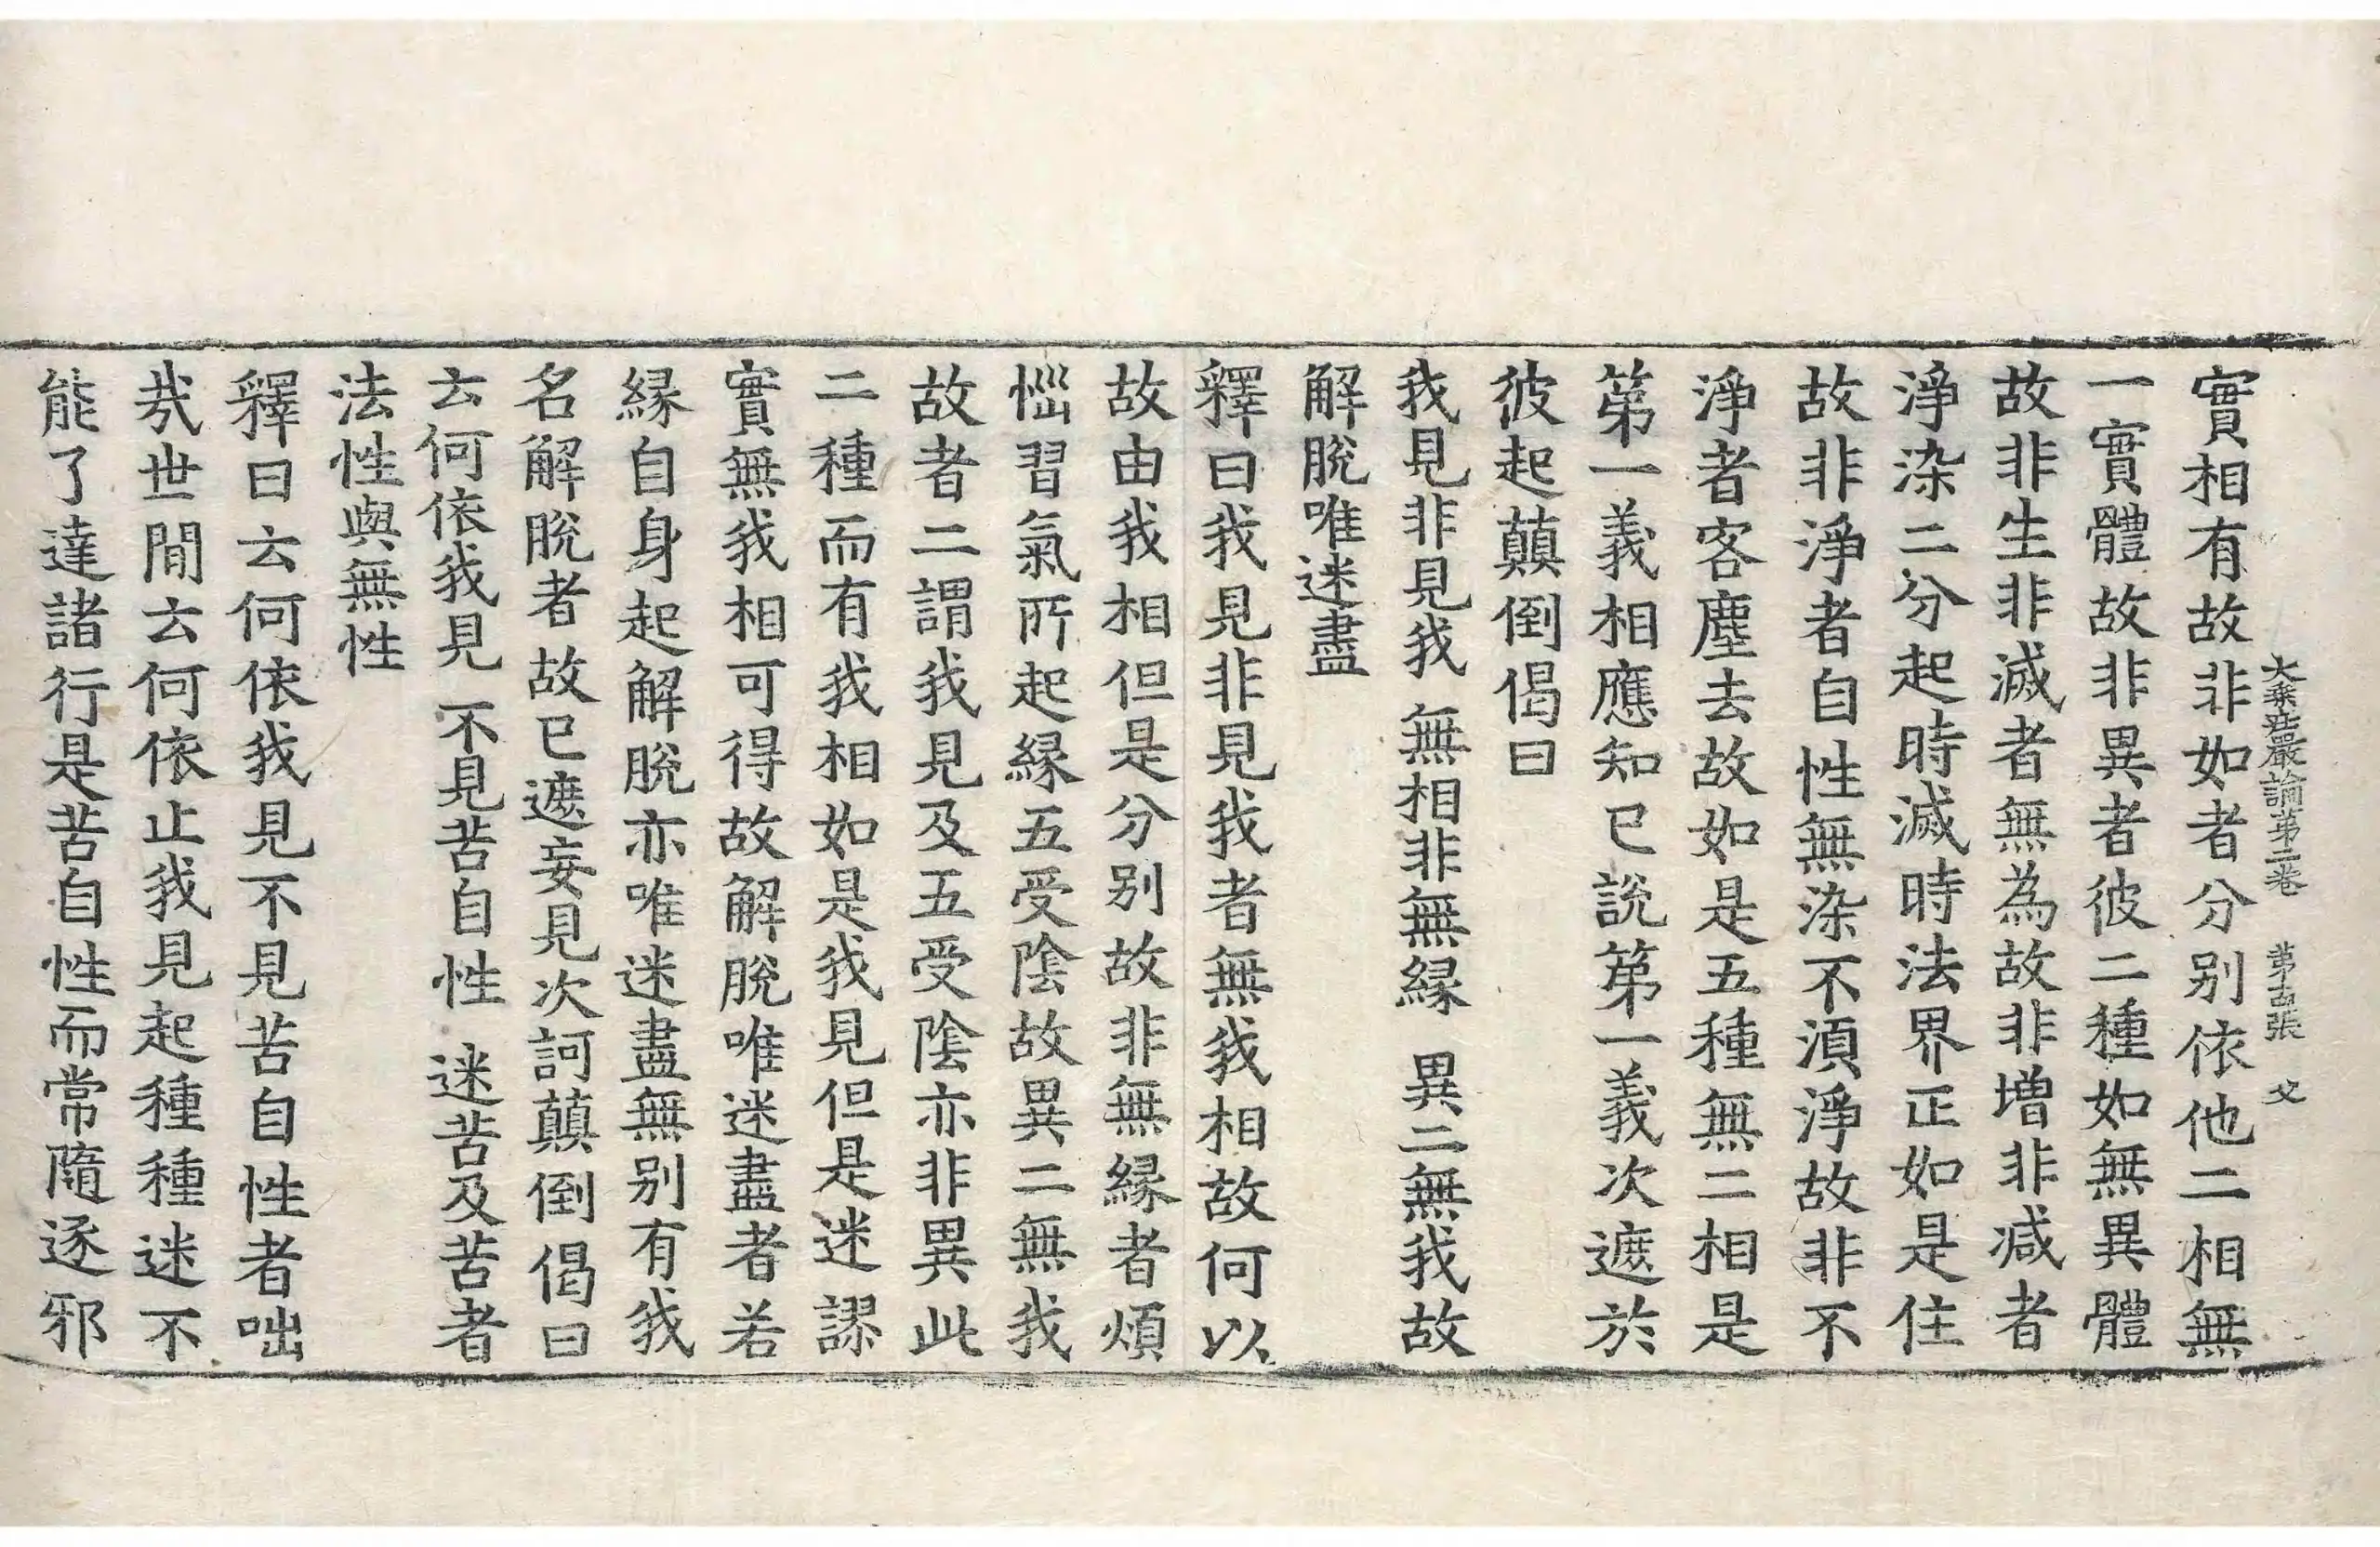 大乗莊嚴論第二卷 第十四張 父
實相有故非如者分別依他二相無
一實體故非異者彼二種如無異體
故非生非滅者無為故非增非減者
淨染二分起時滅時法界正如是住
故非淨者自性無染不湏淨故非不
淨者客塵去故如是五種無二相是
第一義相應知已說第一義次遮於
彼起顛倒偈曰
我見非見我 無相非無緣 異二無我故
解脫唯迷盡
釋曰我見非見我者無我相故何以
故由我相但是分別故非無緣者煩
惱習氣所起緣五受陰故異二無我
故者二謂我見及五受陰亦非異此
二種而有我相如是我見但是迷謬
實無我相可得故解脫唯迷盡者若
緣自身起解脫亦唯迷盡無別有我
名解脫者故已遮妄見次訶顛倒偈曰
云何依我見 不見苦自性 迷苦及苦者
法性與無性
釋曰云何依我見不見苦自性者咄
哉世間云何依止我見起種種迷不
能了達諸行是苦自性而常隨逐邪